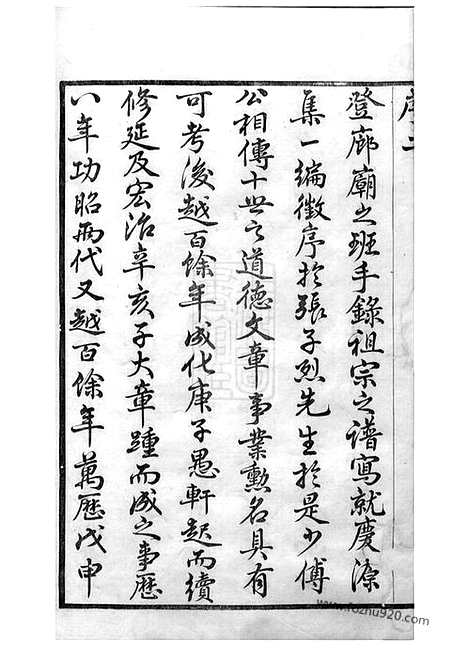 序二
登廊廟之班手錄祖宗之譜寫就慶源
集一編徵序於張子烈先生於是少傅
公相傳十世之道德文章事業勲名具有
可考後越百餘年成化庚子愚軒起而續
修延及宏治辛亥子大章踵而成之事歷
八年功昭兩代又越百餘年萬歷戊申
www.fozhu920.com